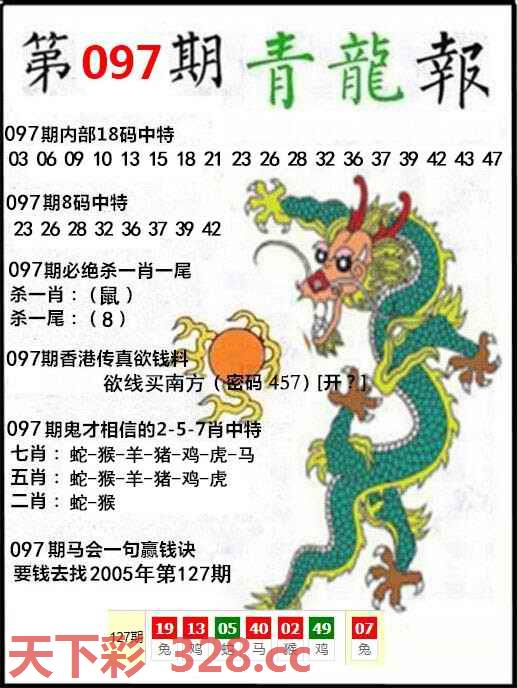 第097期 青龍報
097期内部18码中特
03 06 09 10 13 15 18 21 23 26 28 32 36 37 39 42 43 47
097期8码中特
23 26 28 32 36 37 39 42
097期必绝杀一肖一尾
杀一肖：（鼠）
杀一尾：（8）
097期香港传真欲钱料
欲线买南方（密码 457）[开？]
097期鬼才相信的2-5-7肖中特
七肖：蛇-猴-羊-猪-鸡-虎-马
五肖：蛇-猴-羊-猪-鸡-虎
二肖：蛇-猴
097期马会一句赢钱诀
要钱去找2005年第127期
127期 19 13 05 40 02 49 07
兔 鸡 蛇 马 猴 鸡 兔
天下彩 328.cc